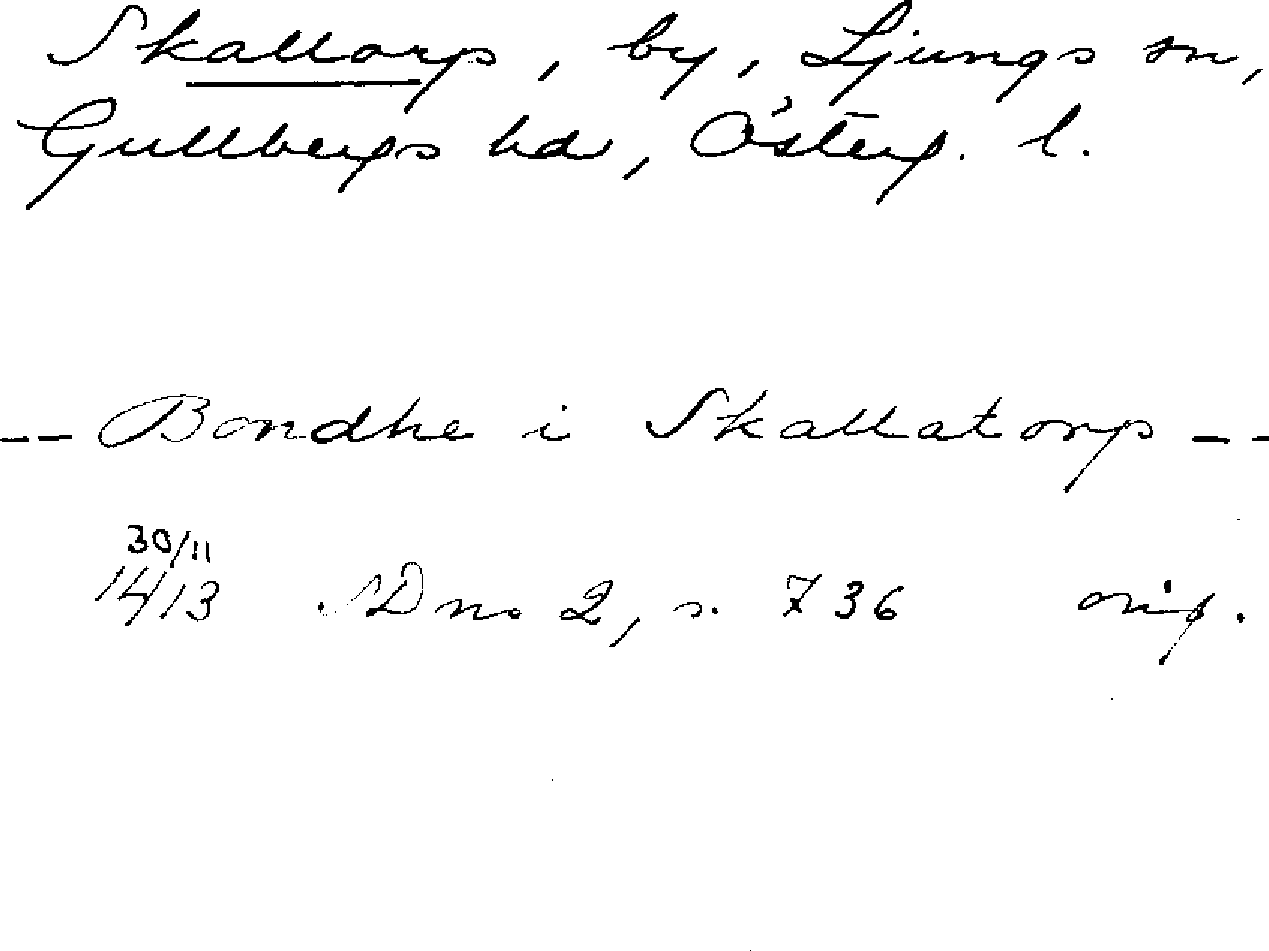 Skattorp, by, Ljungs sn,
Gullbergs hd, Österg. l.
-- Bondhe i Skallatorp --
30/11
1413 SDns 2, s. 736 orig.